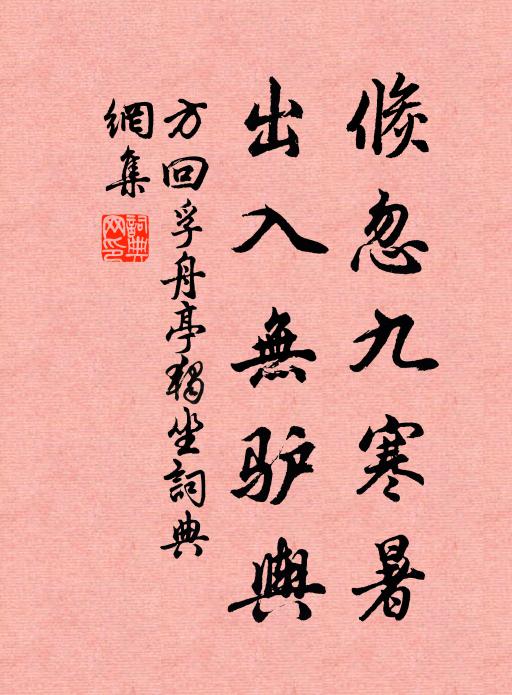 倏忽九寒暑
出入無驴輿
方回孚舟亭獨坐詞典
網集
詞典網印